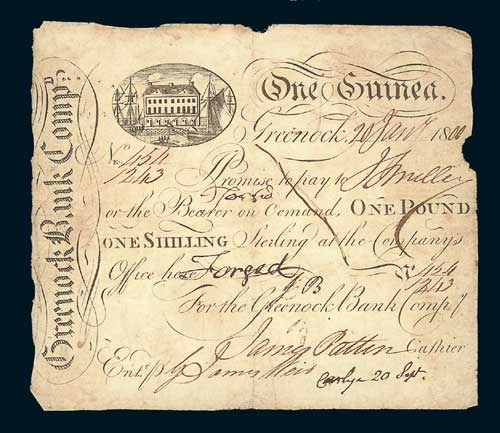 Greenock Bank Compy.
One Guinea.
Greenock, 20 Jany 1800
No. 154
1243
I Promise to pay to J Miller
Forged
or the Bearer on Demand, ONE POUND
ONE SHILLING Sterling at the Company's
Office here
Forged
No 154
1243
JB
For the Greenock Bank Compy
James Pattin Cashier
Entd. p James Weir
20 Sept.